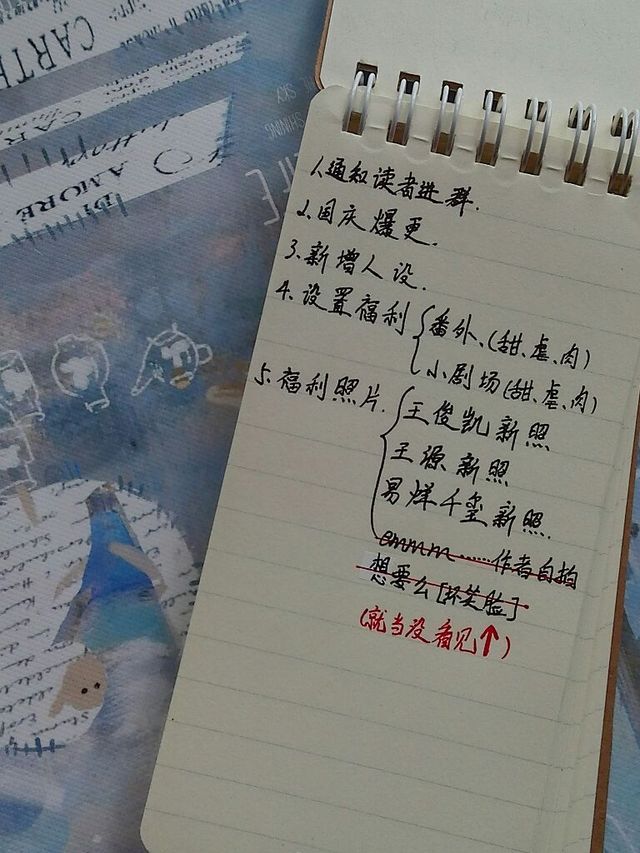 CARTE
CAR
AMORE
SKY
SHINING
1.通知读者进群.
2.国庆爆更.
3.新增人设.
4.设置福利
番外、(甜、虐、肉)
小剧场(甜、虐、肉)
5.福利照片.
王俊凯新照
王源新照
易烊千玺新照.
emmm……作者自拍
想要么[坏笑脸].
(就当没看见↑)